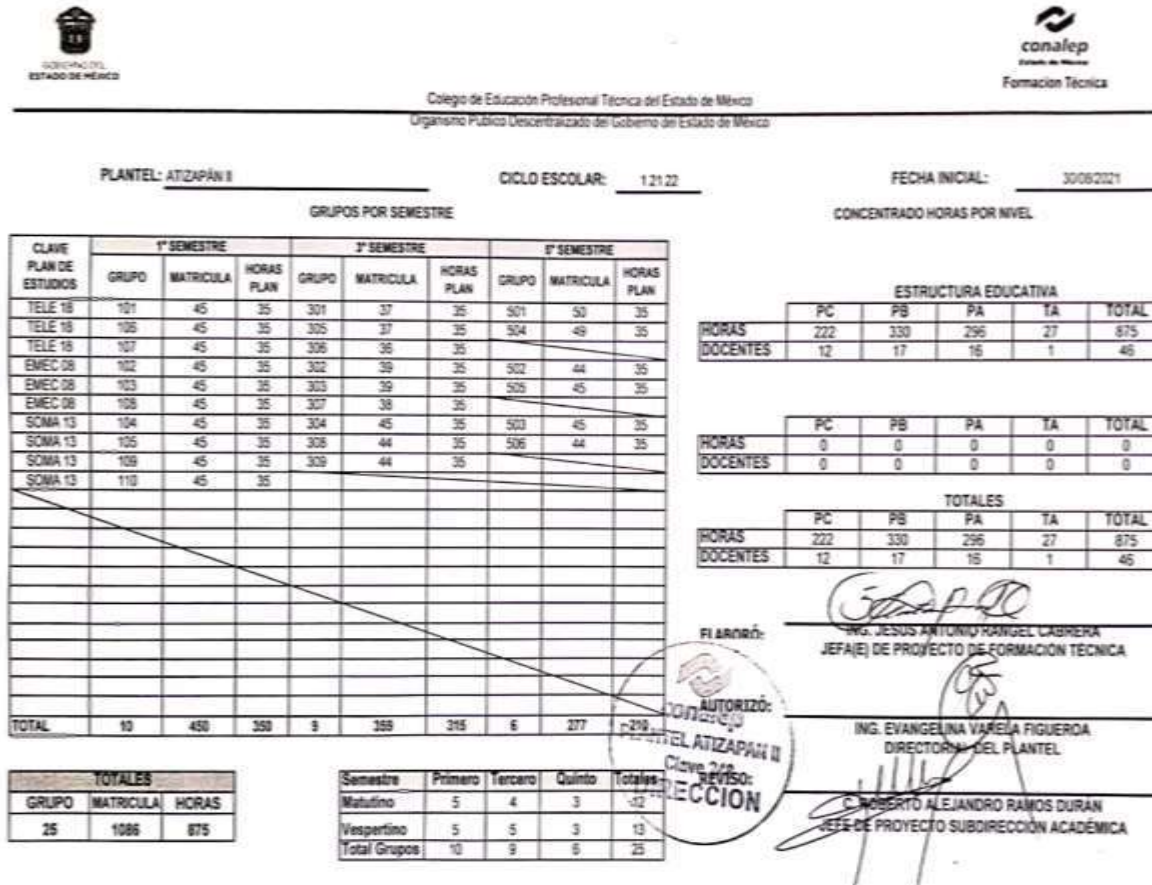 GOBIERNO DEL
ESTADO DE MÉXICO
conalep
Estado de México
Formacion Técnica
Colegio de Educación Profesional Técnica del Estado de México
Organismo Público Descentralizado del Gobierno del Estado de México
PLANTEL: ATIZAPÁN II CICLO ESCOLAR: 1.21.22 FECHA INICIAL: 30/08/2021
GRUPOS POR SEMESTRE
CLAVE PLAN DE ESTUDIOS 1° SEMESTRE 3° SEMESTRE 5° SEMESTRE
GRUPO MATRICULA HORAS PLAN GRUPO MATRICULA HORAS PLAN GRUPO MATRICULA HORAS PLAN
TELE 18 101 45 35 301 37 35 501 50 35
TELE 18 106 45 35 305 37 35 504 49 35
TELE 18 107 45 35 306 36 35
EMEC 08 102 45 35 302 39 35 502 44 35
EMEC 08 103 45 35 303 39 35 505 45 35
EMEC 08 108 45 35 307 38 35
SOMA 13 104 45 35 304 45 35 503 45 35
SOMA 13 105 45 35 308 44 35 506 44 35
SOMA 13 109 45 35 309 44 35
SOMA 13 110 45 35
TOTAL 10 450 350 9 359 315 6 277 210
TOTALES
GRUPO MATRICULA HORAS
25 1086 875
Semestre Primero Tercero Quinto Totales
Matutino 5 4 3 12
Vespertino 5 5 3 13
Total Grupos 10 9 6 25
CONCENTRADO HORAS POR NIVEL
ESTRUCTURA EDUCATIVA
PC PB PA TA TOTAL
HORAS 222 330 296 27 875
DOCENTES 12 17 16 1 46
PC PB PA TA TOTAL
HORAS 0 0 0 0 0
DOCENTES 0 0 0 0 0
TOTALES
PC PB PA TA TOTAL
HORAS 222 330 296 27 875
DOCENTES 12 17 16 1 46
ELABORÓ:
ING. JESUS ANTONIO RANGEL CABRERA
JEFA(E) DE PROYECTO DE FORMACIÓN TÉCNICA
AUTORIZÓ:
ING. EVANGELINA VARELA FIGUEROA
DIRECTOR(A) DEL PLANTEL
REVISO:
C. ROBERTO ALEJANDRO RAMOS DURÁN
JEFE DE PROYECTO SUBDIRECCIÓN ACADÉMICA
conalep
PLANTEL ATIZAPAN II
Clave 248
DIRECCION